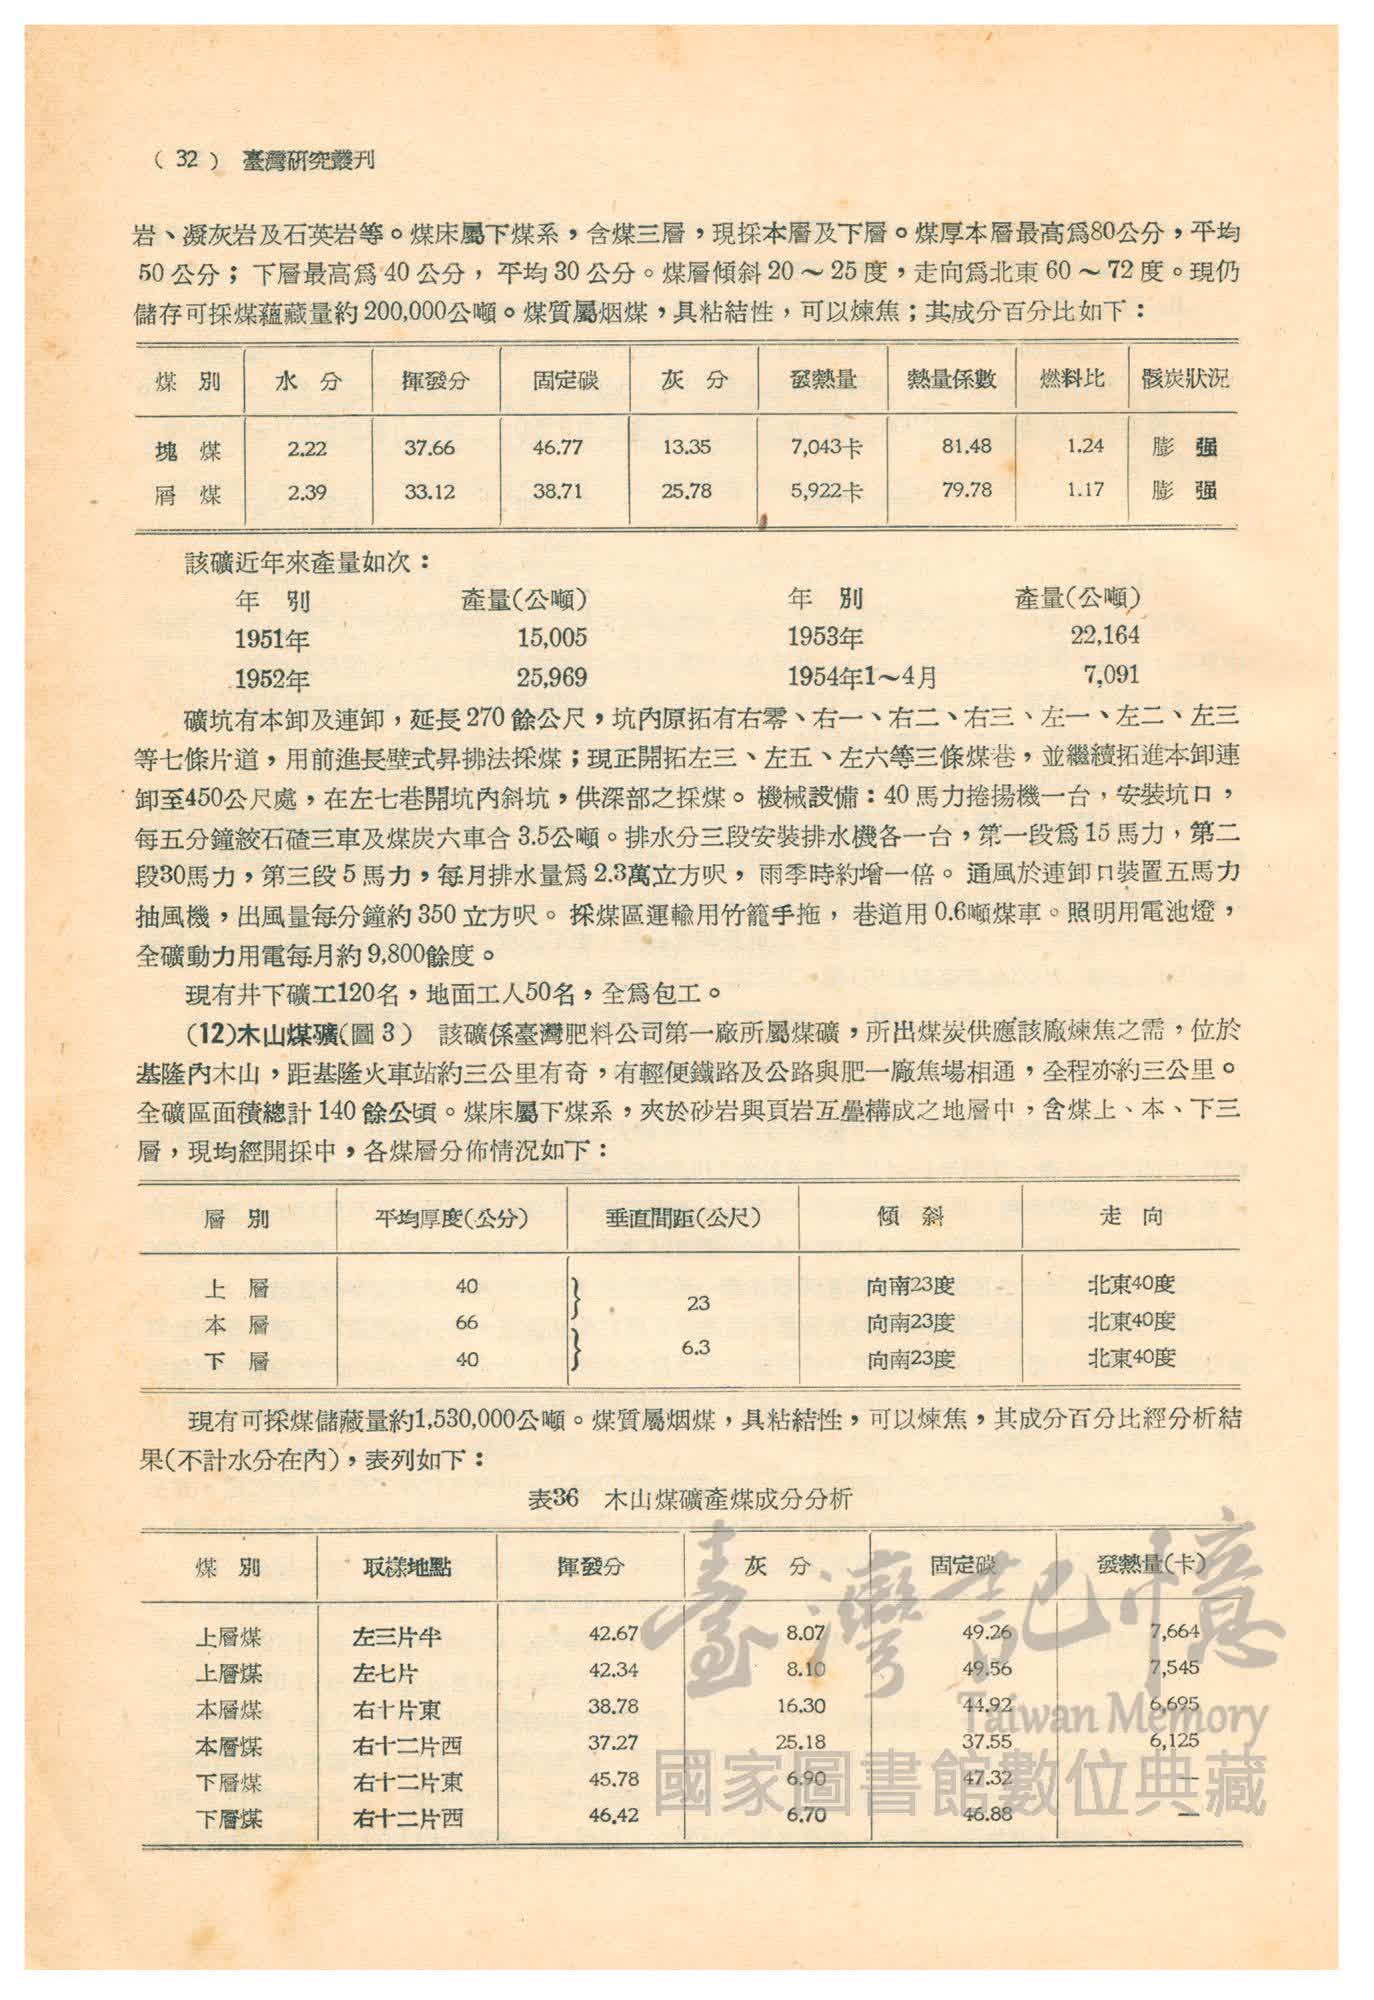 ( 32 ) 臺灣研究叢刊
岩、凝灰岩及石英岩等。煤床屬下煤系，含煤三層，現採本層及下層。煤厚本層最高爲80公分，平均
50公分；下層最高爲40公分，平均30公分。煤層傾斜20～25度，走向爲北東60～72度。現仍
儲存可採煤蘊藏量約200,000公噸。煤質屬烟煤，具粘結性，可以煉焦；其成分百分比如下：
煤 別 水 分 揮發分 固定碳 灰 分 發熱量 熱量係數 燃料比 骸炭狀況
塊 煤 2.22 37.66 46.77 13.35 7,043卡 81.48 1.24 膨 强
屑 煤 2.39 33.12 38.71 25.78 5,922卡 79.78 1.17 膨 强
該礦近年來產量如次：
年 別 產量(公噸) 年 別 產量(公噸)
1951年 15,005 1953年 22,164
1952年 25,969 1954年1～4月 7,091
礦坑有本卸及連卸，延長270餘公尺，坑內原拓有右零、右一、右二、右三、左一、左二、左三
等七條片道，用前進長壁式昇拂法採煤；現正開拓左三、左五、左六等三條煤巷，並繼續拓進本卸連
卸至450公尺處，在左七巷開坑內斜坑，供深部之採煤。機械設備：40馬力捲揚機一台，安裝坑口，
每五分鐘絞石碴三車及煤炭六車合3.5公噸。排水分三段安裝排水機各一台，第一段爲15馬力，第二
段30馬力，第三段5馬力，每月排水量爲2.3萬立方呎，雨季時約增一倍。通風於連卸口裝置五馬力
抽風機，出風量每分鐘約350立方呎。採煤區運輸用竹籠手拖，巷道用0.6噸煤車。照明用電池燈，
全礦動力用電每月約9,800餘度。
現有井下礦工120名，地面工人50名，全爲包工。
(12)木山煤礦(圖3) 該礦係臺灣肥料公司第一廠所屬煤礦，所出煤炭供應該廠煉焦之需，位於
基隆內木山，距基隆火車站約三公里有奇，有輕便鐵路及公路與肥一廠焦場相通，全程亦約三公里。
全礦區面積總計140餘公頃。煤床屬下煤系，夾於砂岩與頁岩互疊構成之地層中，含煤上、本、下三
層，現均經開採中，各煤層分佈情況如下：
層 別 平均厚度(公分) 垂直間距(公尺) 傾 斜 走 向
上 層 40 向南23度 北東40度
23
本 層 66 向南23度 北東40度
6.3
下 層 40 向南23度 北東40度
現有可採煤儲藏量約1,530,000公噸。煤質屬烟煤，具粘結性，可以煉焦，其成分百分比經分析結
果(不計水分在內)，表列如下：
表36 木山煤礦產煤成分分析
煤 別 取樣地點 揮發分 灰 分 固定碳 發熱量(卡)
上層煤 左三片半 42.67 8.07 49.26 7,664
上層煤 左七片 42.34 8.10 49.56 7,545
本層煤 右十片東 38.78 16.30 44.92 6,695
本層煤 右十二片西 37.27 25.18 37.55 6,125
下層煤 右十二片東 45.78 6.90 47.32 —
下層煤 右十二片西 46.42 6.70 46.88 —
臺灣記憶
Taiwan Memory
國家圖書館數位典藏